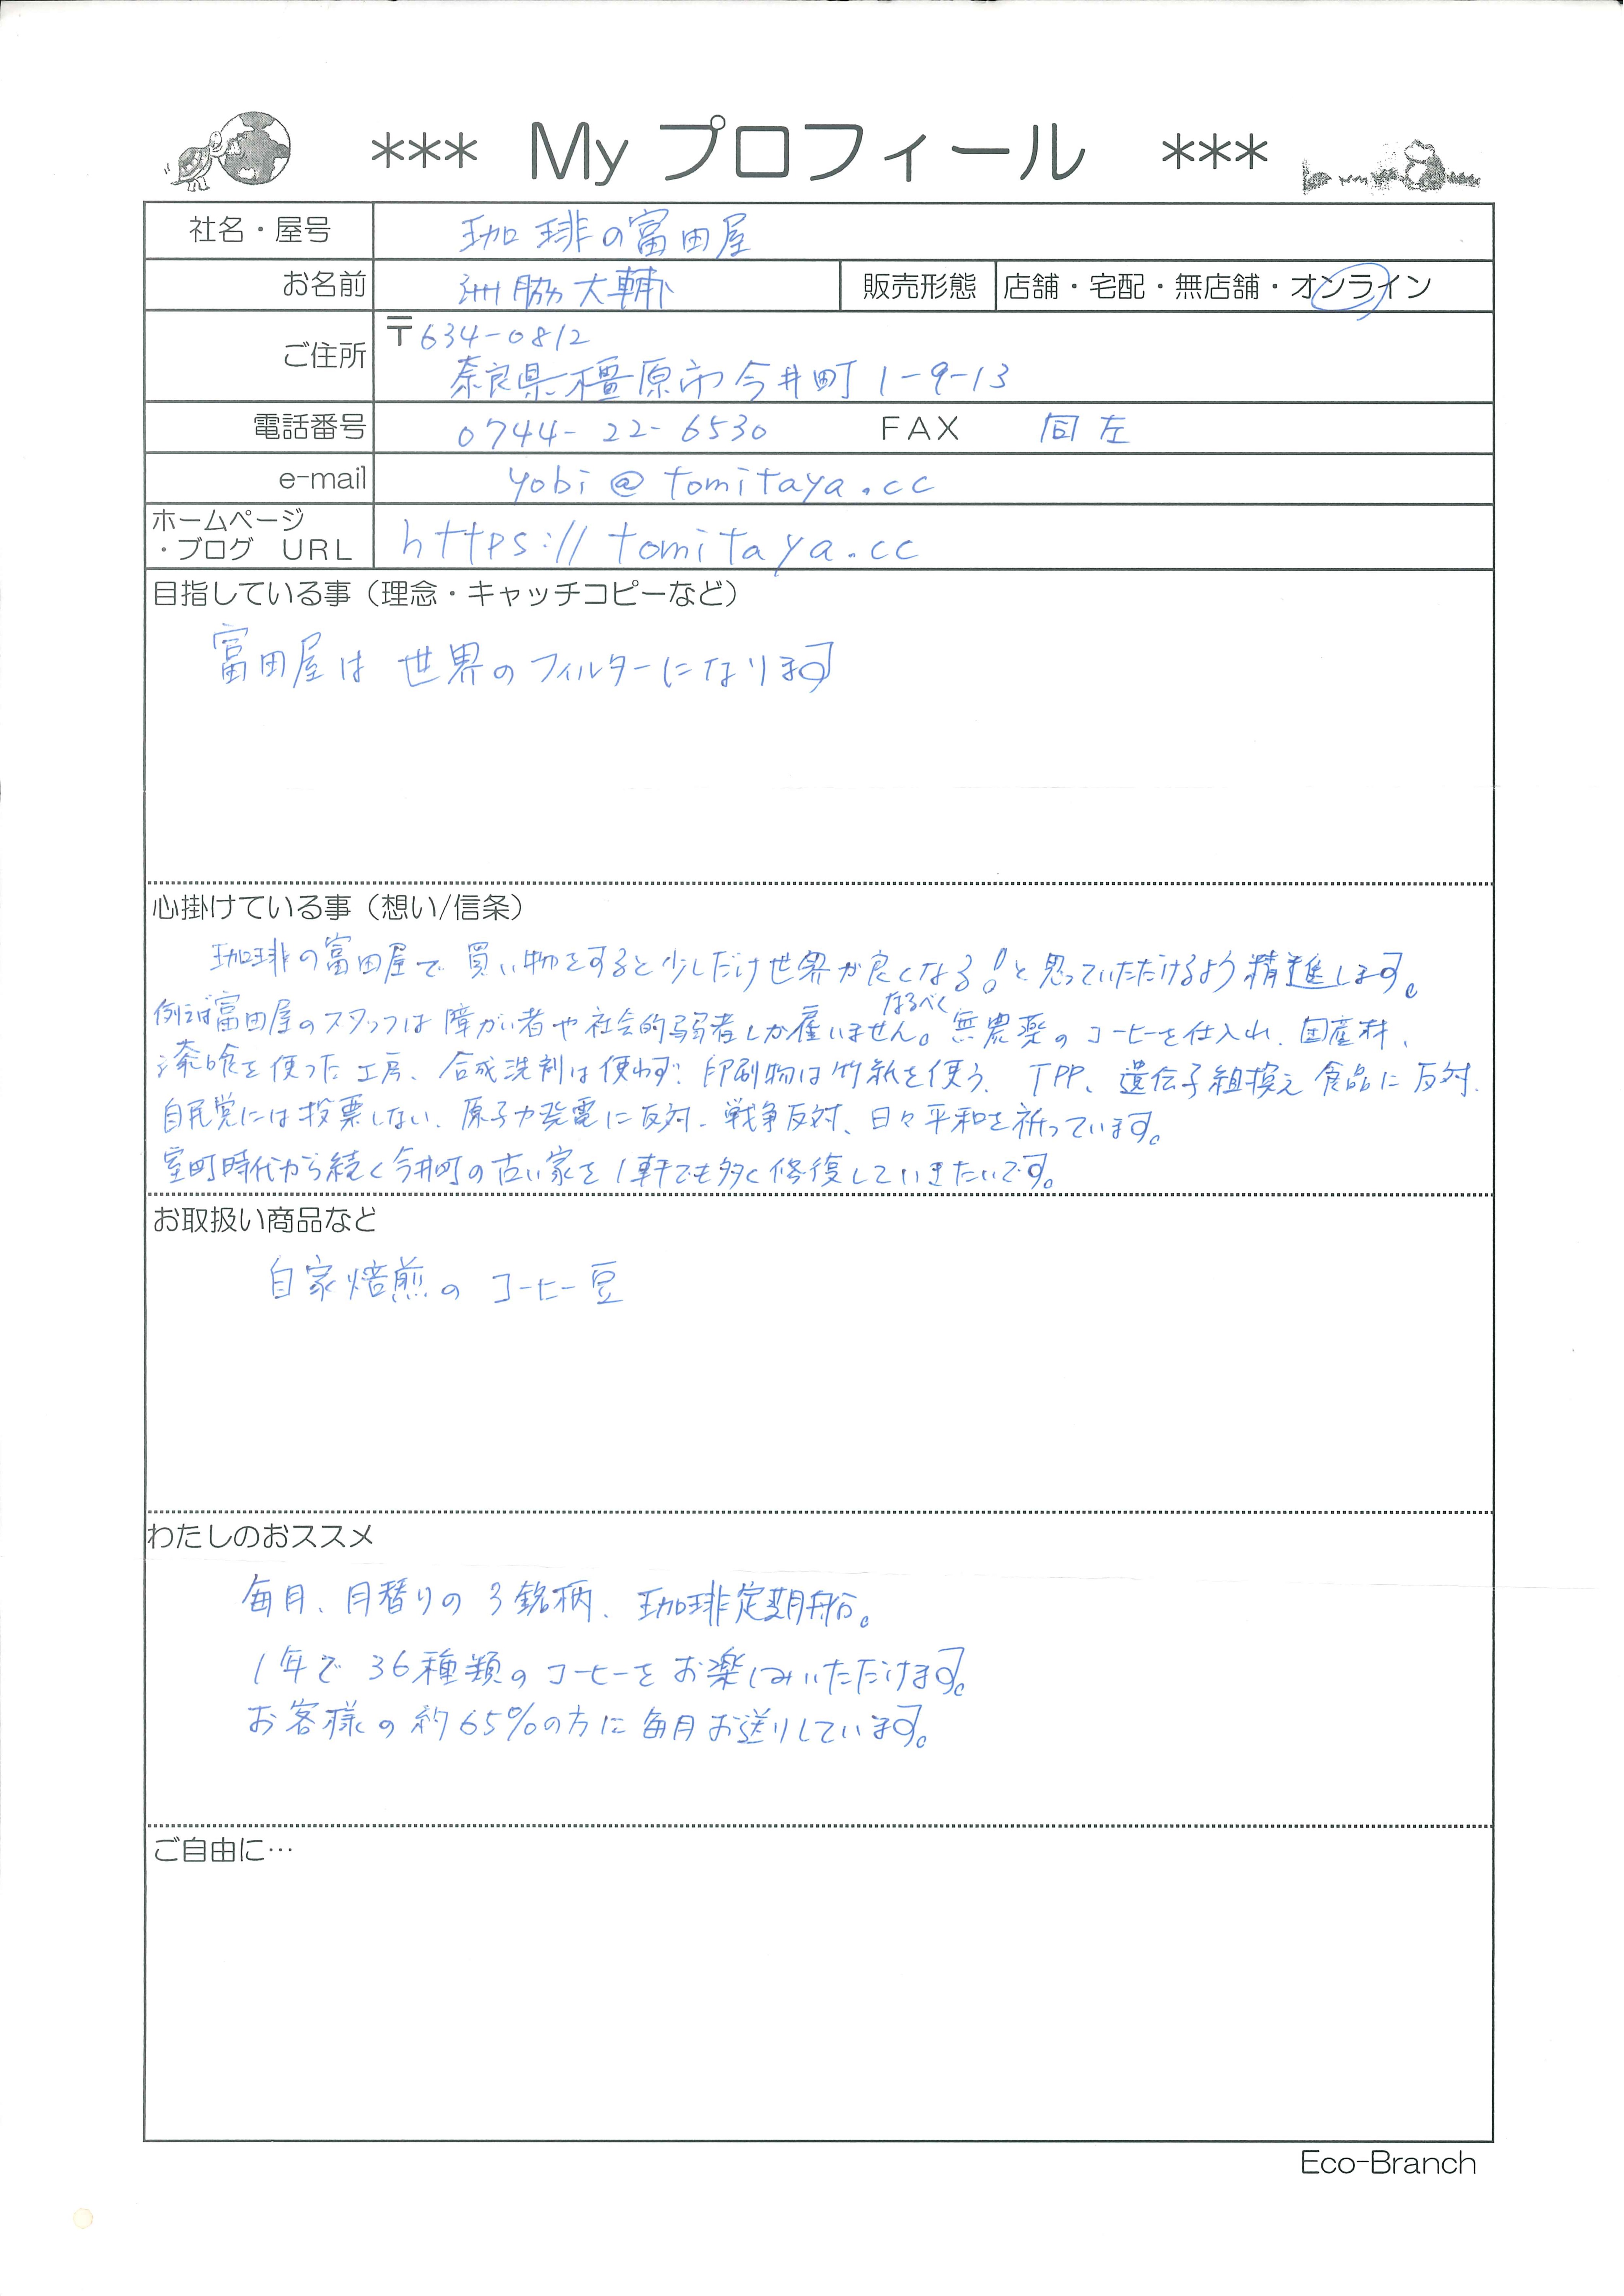 *** My プロフィール ***
社名・屋号 珈琲の富田屋
お名前 洲脇大輔 販売形態 店舗・宅配・無店舗・オンライン
ご住所 〒634-0812
奈良県橿原市今井町1-9-13
電話番号 0744-22-6530 FAX 同左
e-mail yobi@tomitaya.cc
ホームページ
・ブログ URL https://tomitaya.cc
目指している事（理念・キャッチコピーなど）
富田屋は世界のフィルターになります
心掛けている事（想い/信条）
珈琲の富田屋で買い物をすると少しだけ世界が良くなる！と思っていただけるよう精進します。
なるべく
例えば富田屋のスタッフは障がい者や社会的弱者しか雇いません。無農薬のコーヒーを仕入れ、国産材、
漆喰を使った工房、合成洗剤は使わず、印刷物は竹紙を使う、TPP、遺伝子組換え食品に反対、
自民党には投票しない、原子力発電に反対、戦争反対、日々平和を祈っています。
室町時代から続く今井町の古い家を1軒でも多く修復していきたいです。
お取扱い商品など
自家焙煎のコーヒー豆
わたしのおススメ
毎月、月替りの3銘柄、珈琲定期船。
1年で36種類のコーヒーをお楽しみいただけます。
お客様の約65%の方に毎月お送りしています。
ご自由に…
Eco-Branch